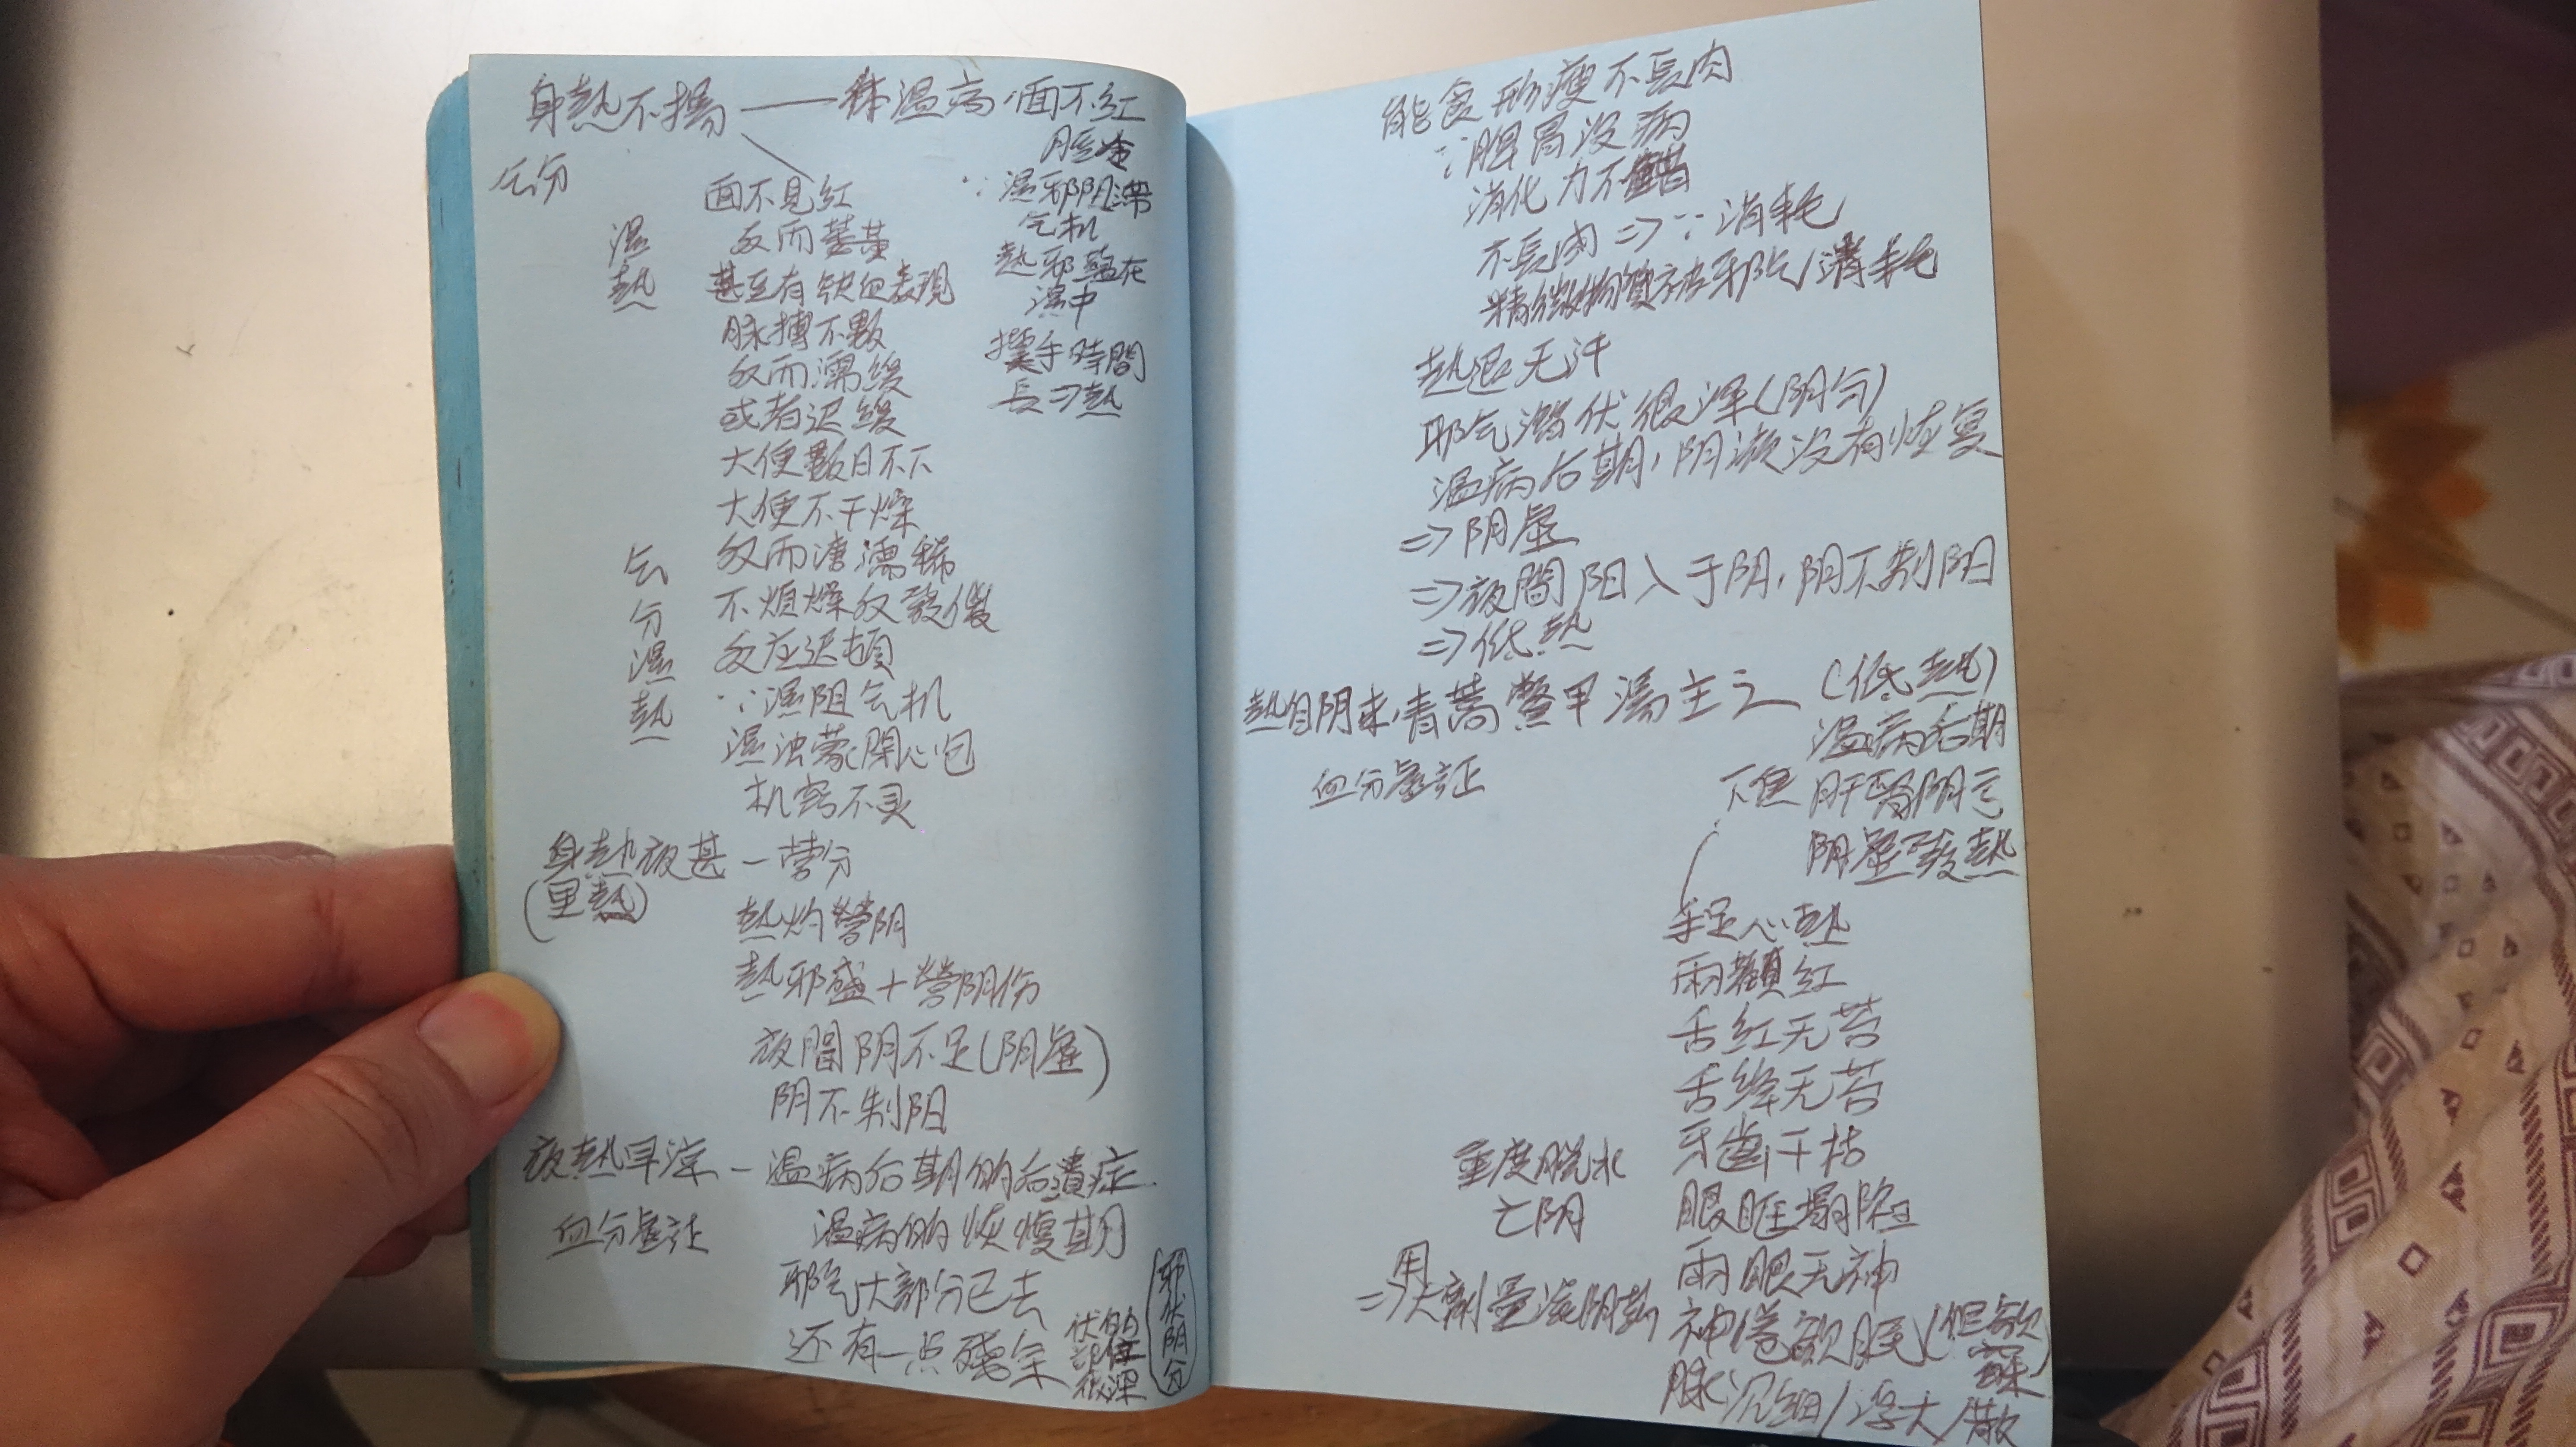 身熱不揚——体温高,面不红
气分
肢冷
∵湿邪阴滞
气机
熱邪蕴在
湿中
摸手時間
長⇒熱
湿
熱
面不见红
反而萎黄
甚至有缺血表现
脉搏不數
反而濡缓
或者迟缓
大便數日不下
大便不干燥
反而溏濡稀
不烦燥反發傻
反应迟頓
∵湿阻气机
湿浊蒙閉心包
机窍不灵
气
分
湿
熱
身熱夜甚—营分
(里熱)
熱灼營阴
熱邪盛+營阴伤
夜間阴不足(阴虚)
阴不制阳
夜熱早涼—温病后期的后遺症
血分虚证
温病的恢復期
邪气大部分已去
还有一点残余
伏的
部位
很深
邪伏阴分
能食形瘦不長肉
∵脾胃没病
消化力不錯
不長肉⇒∵消耗
精微物質被邪气消耗
熱退无汗
邪气潜伏很深(阴分)
温病后期,阴液没有恢复
⇒阴虚
⇒夜間阳入于阴,阴不制阳
⇒低熱
熱自阴来,青蒿鱉甲湯主之(低熱)
血分虚证
温病后期
下焦肝腎阴亏
阴虚發熱
手足心熱
兩顴红
舌红无苔
舌绛无苔
牙齒干枯
重度脱水
亡阴
眼眶塌陷
兩眼无神
⇒用大劑量滋阴药
神倦欲眠(但欲寐)
脉沉细/浮大/散